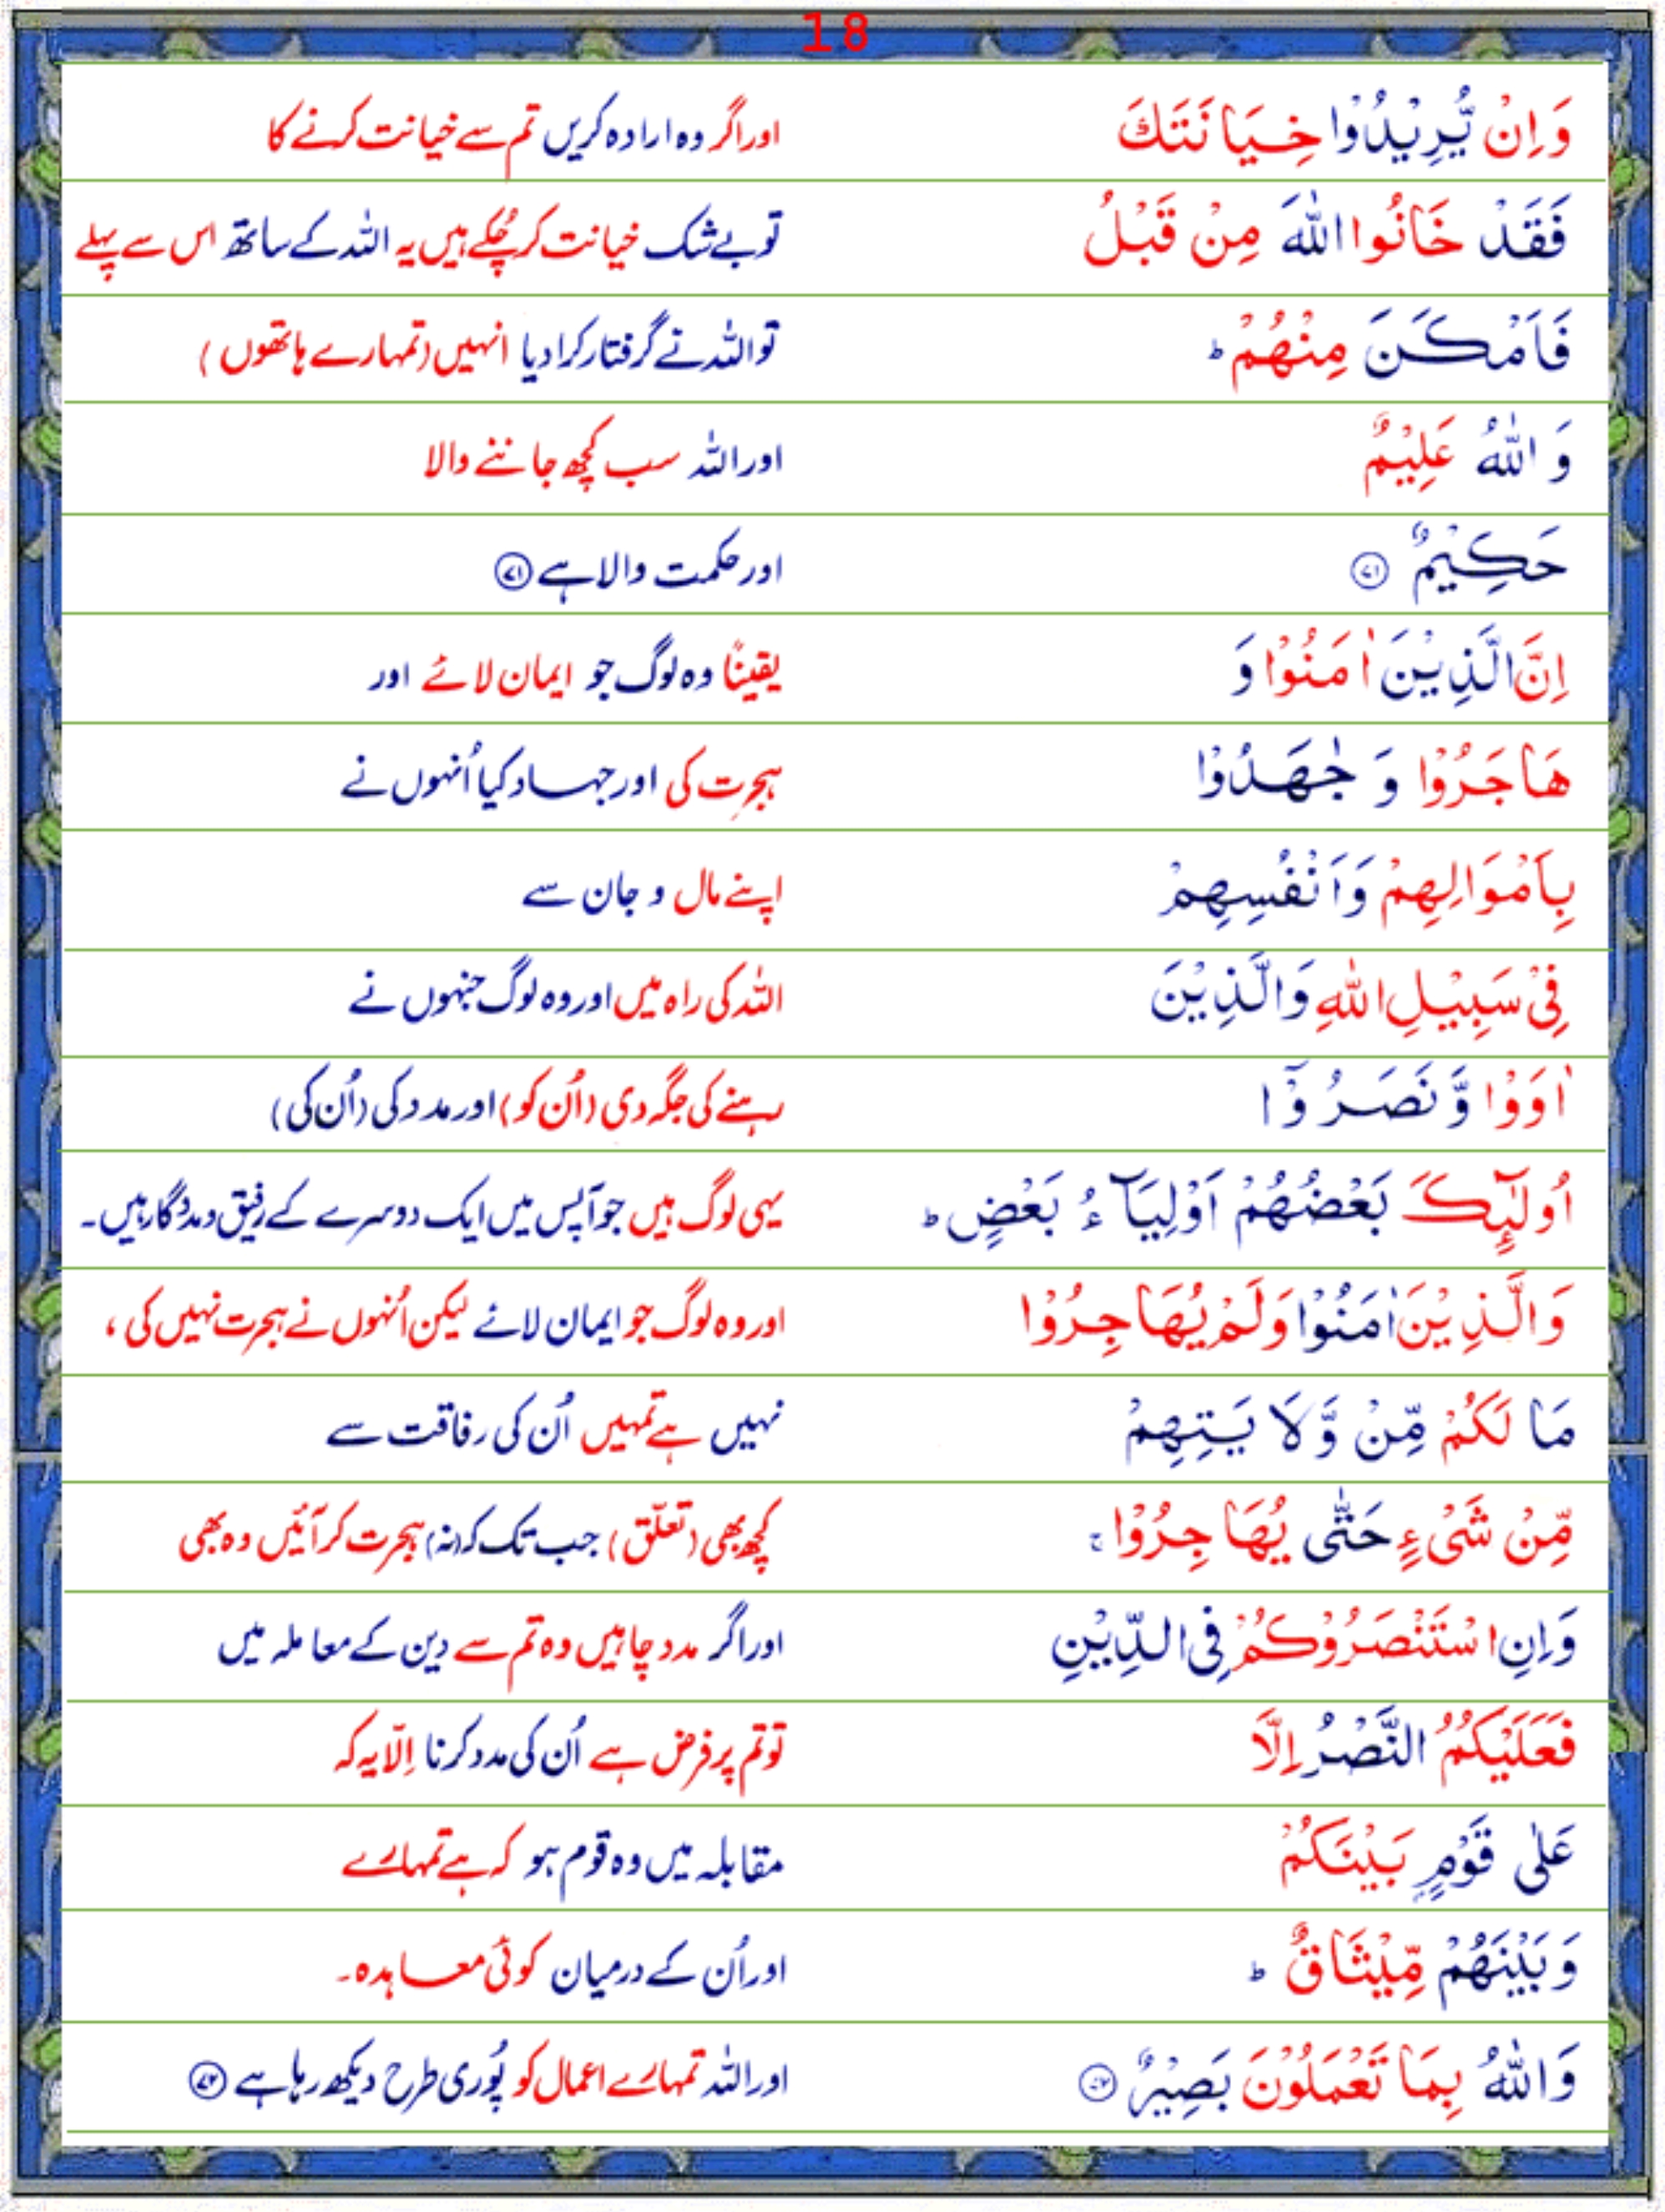 18
وَاِنْ يُّرِيْدُوْا خِيَانَتَكَ اور اگر وہ ارادہ کریں تم سے خیانت کرنے کا
فَقَدْ خَانُوا اللّٰهَ مِنْ قَبْلُ تو بے شک خیانت کر چُکے ہیں یہ اللہ کے ساتھ اس سے پہلے
فَاَمْكَنَ مِنْهُمْ ؕ تو اللہ نے گرفتار کرا دیا انہیں (تمہارے ہاتھوں)
وَ اللّٰهُ عَلِيْمٌ اور اللہ سب کچھ جاننے والا
حَكِيْمٌ ۷۱ اور حکمت والا ہے ۷۱
اِنَّ الَّذِيْنَ اٰمَنُوْا وَ یقینًا وہ لوگ جو ایمان لائے اور
هَاجَرُوْا وَ جٰهَدُوْا ہجرت کی اور جہاد کیا اُنہوں نے
بِاَمْوَالِهِمْ وَاَنْفُسِهِمْ اپنے مال و جان سے
فِيْ سَبِيْلِ اللّٰهِ وَالَّذِيْنَ اللہ کی راہ میں اور وہ لوگ جنہوں نے
اٰوَوْا وَّ نَصَرُوْۤا رہنے کی جگہ دی (اُن کو) اور مدد کی (اُن کی)
اُولٰٓئِكَ بَعْضُهُمْ اَوْلِيَآءُ بَعْضٍ ؕ یہی لوگ ہیں جو آپس میں ایک دوسرے کے رفیق و مددگار ہیں۔
وَالَّذِيْنَ اٰمَنُوْا وَلَمْ يُهَاجِرُوْا اور وہ لوگ جو ایمان لائے لیکن اُنہوں نے ہجرت نہیں کی ،
مَا لَكُمْ مِّنْ وَّلَا يَتِهِمْ نہیں ہے تمہیں اُن کی رفاقت سے
مِّنْ شَيْءٍ حَتّٰى يُهَاجِرُوْا ۚ کچھ بھی (تعلّق) جب تک کہ (نہ) ہجرت کر آئیں وہ بھی
وَاِنِ اسْتَنْصَرُوْكُمْ فِي الدِّيْنِ اور اگر مدد چاہیں وہ تم سے دین کے معاملہ میں
فَعَلَيْكُمُ النَّصْرُ اِلَّا تو تم پر فرض ہے اُن کی مدد کرنا اِلّا یہ کہ
عَلٰى قَوْمٍۭ بَيْنَكُمْ مقابلہ میں وہ قوم ہو کہ ہے تمہارے
وَبَيْنَهُمْ مِّيْثَاقٌ ؕ اور اُن کے درمیان کوئی معاہدہ۔
وَاللّٰهُ بِمَا تَعْمَلُوْنَ بَصِيْرٌ ۷۲ اور اللہ تمہارے اعمال کو پُوری طرح دیکھ رہا ہے ۷۲